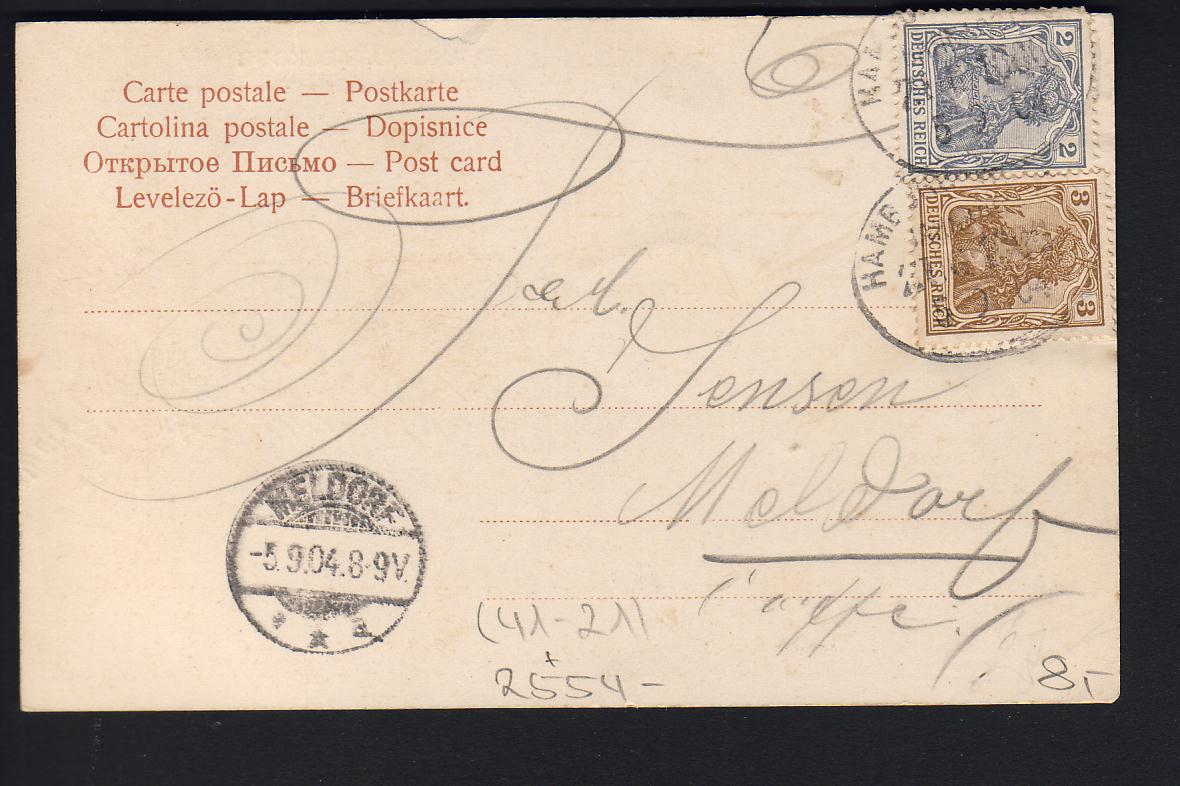 Carte postale — Postkarte
Cartolina postale — Dopisnice
Открытое Письмо — Post card
Levelezö-Lap — Briefkaart.
2 DEUTSCHES REICH 2
3 DEUTSCHES REICH 3
HAMB
Jensen
Meldorf
MELDORF
-5.9.04.8-9V.
(41-21)
2554-
8,-